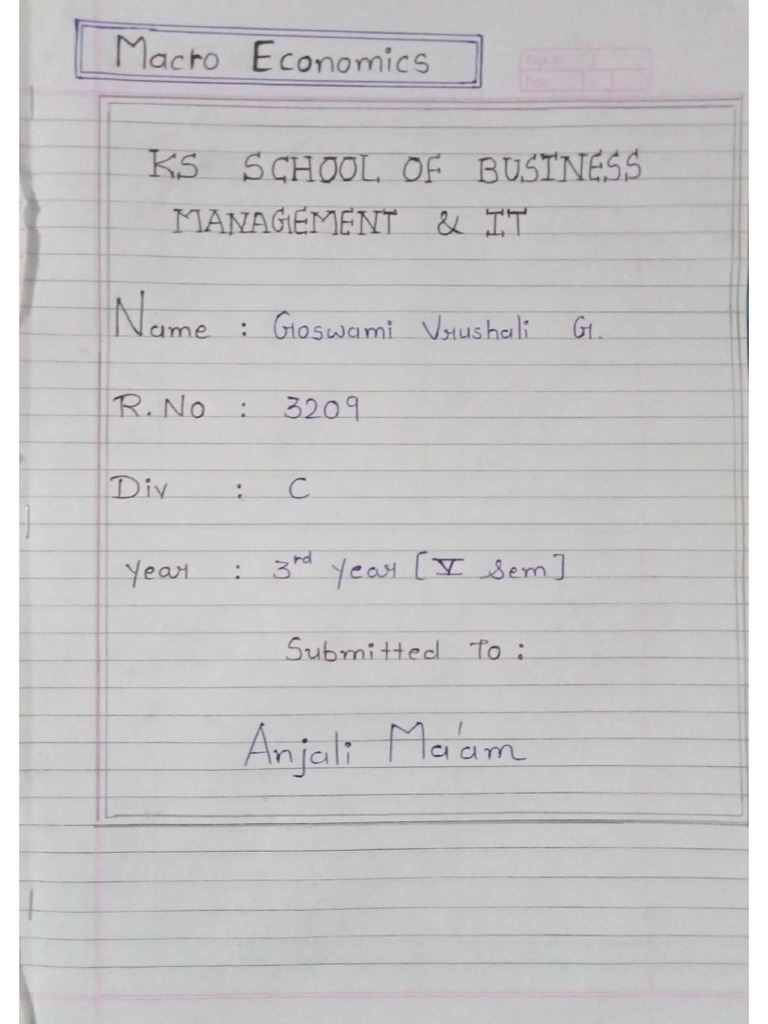 Macro Economics
KS SCHOOL OF BUSINESS
MANAGEMENT & IT
Name : Goswami Vrushali G.
R.No : 3209
Div : C
Year : 3rd Year [V Sem]
Submitted To :
Anjali Ma'am